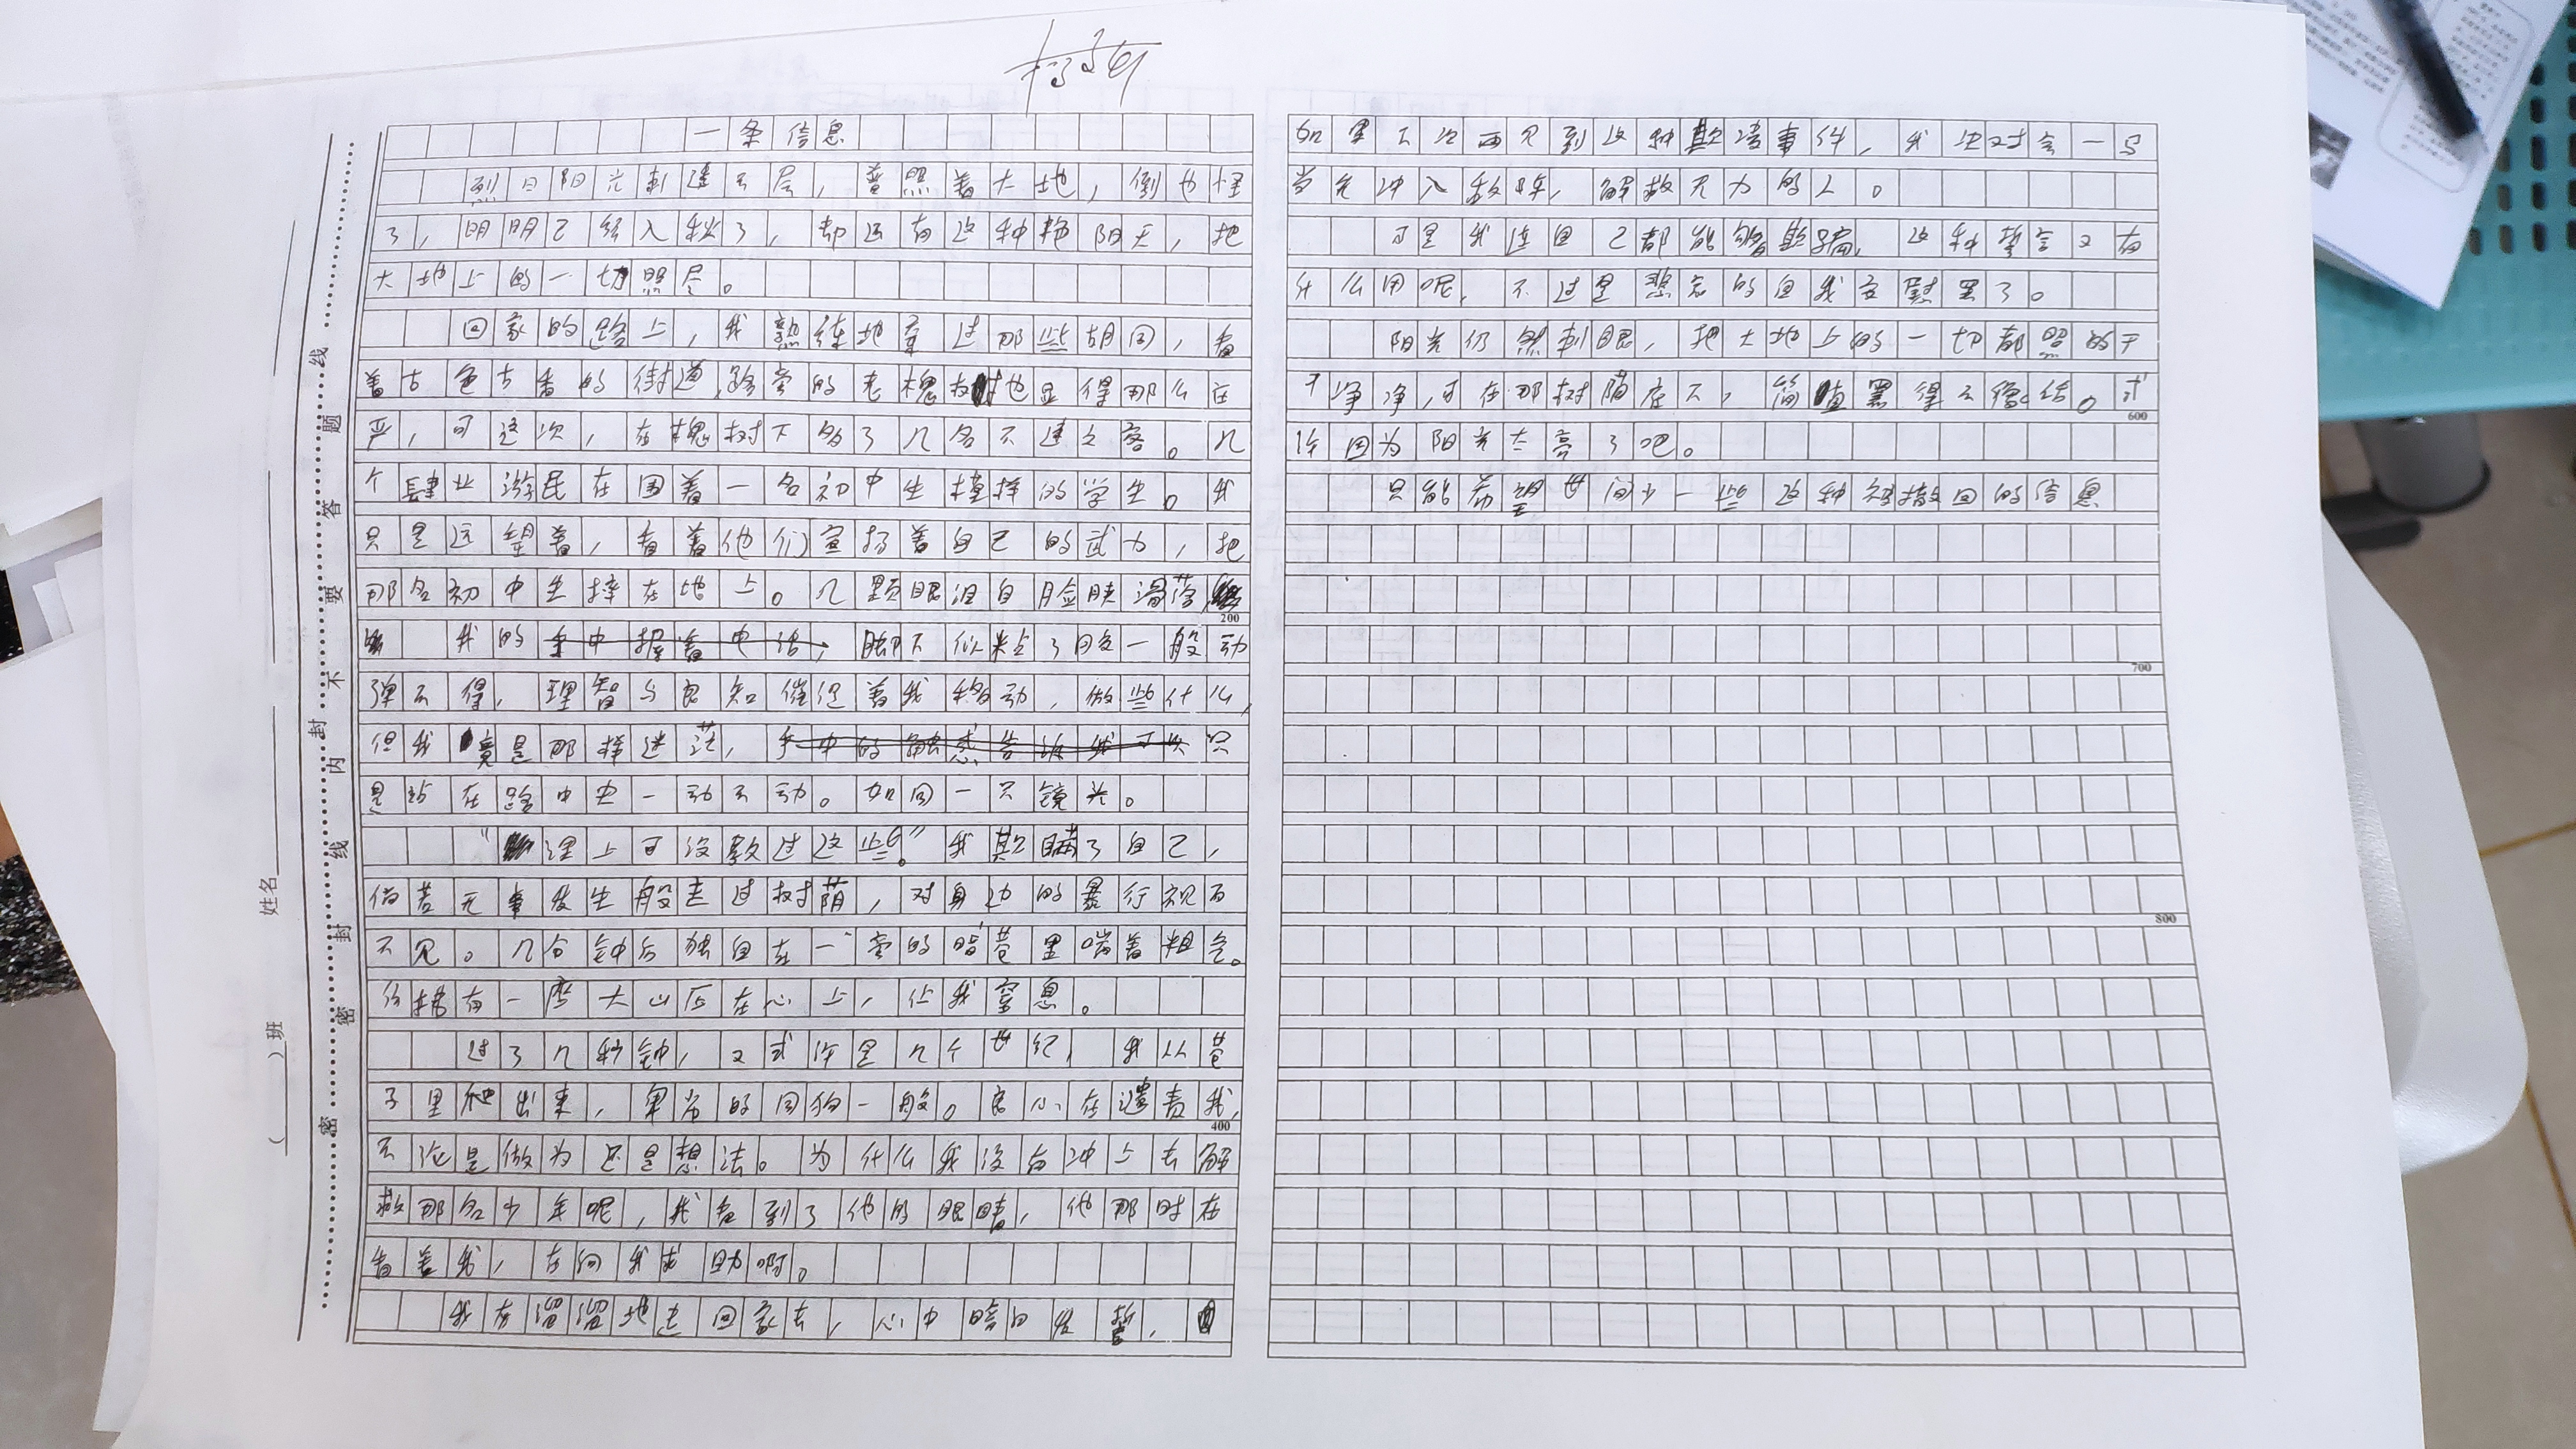 一条信息
烈日阳光刺透云层，普照着大地，倒也怪
了，明明已经入秋了，却还有这种艳阳天，把
大地上的一切照尽。
回家的路上，我熟练地穿过那些胡同，看
着古色古香的街道，路旁的老槐树也显得那么庄
严，可这次，在槐树下多了几名不速之客。几
个肆业游民在围着一名初中生模样的学生。我
只是远望着，看着他们宣扬着自己的武力，把
那名初中生摔在地上。几颗眼泪自脸颊滑落
我的手中握着电话，脚下似粘了胶一般动
弹不得，理智与良知催促着我移动，做些什么，
但我竟是那样迷茫，手中的触感告诉我可以只
是站在路中央一动不动。如同一只镜头。
“理上可没教过这些。”我欺瞒了自己，
倘若无事发生般走过树荫，对身边的暴行视而
不见。几分钟后独自在一旁的暗巷里喘着粗气。
仿拂有一座大山压在心上，让我窒息。
过了几秒钟，又或许是几个世纪，我从巷
子里爬出来，卑劣的同狗一般。良心在谴责我，
不论是做为还是想法。为什么我没有冲上去解
救那名少年呢，我看到了他的眼睛，他那时在
看着我，在向我求助啊。
我灰溜溜地走回家去，心中暗自发誓，
如果下次再见到这种欺凌事件，我绝对会一马
当先冲入敌阵，解救无力的人。
可是我连自己都能够欺骗，这种誓言又有
什么用呢，不过是悲哀的自我安慰罢了。
阳光仍然刺眼，把大地上的一切都照的干
干净净，可在那树荫底下，简直黑得不像话。或
许因为阳光太亮了吧。
只能希望世间少一些这种被撤回的信息
200
400
600
700
800
姓名
（ ）班
密 封 线 内 不 要 答 题
密 封 线